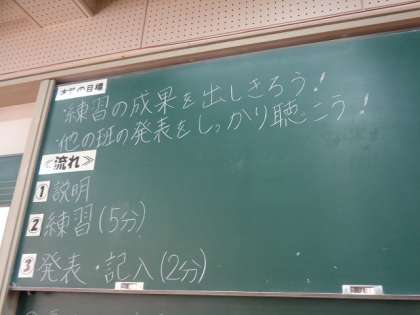 本時の目標
・練習の成果を出しきろう!
・他の班の発表をしっかり聴こう!
≪流れ≫
1 説明
2 練習(5分)
3 発表・記入(2分)